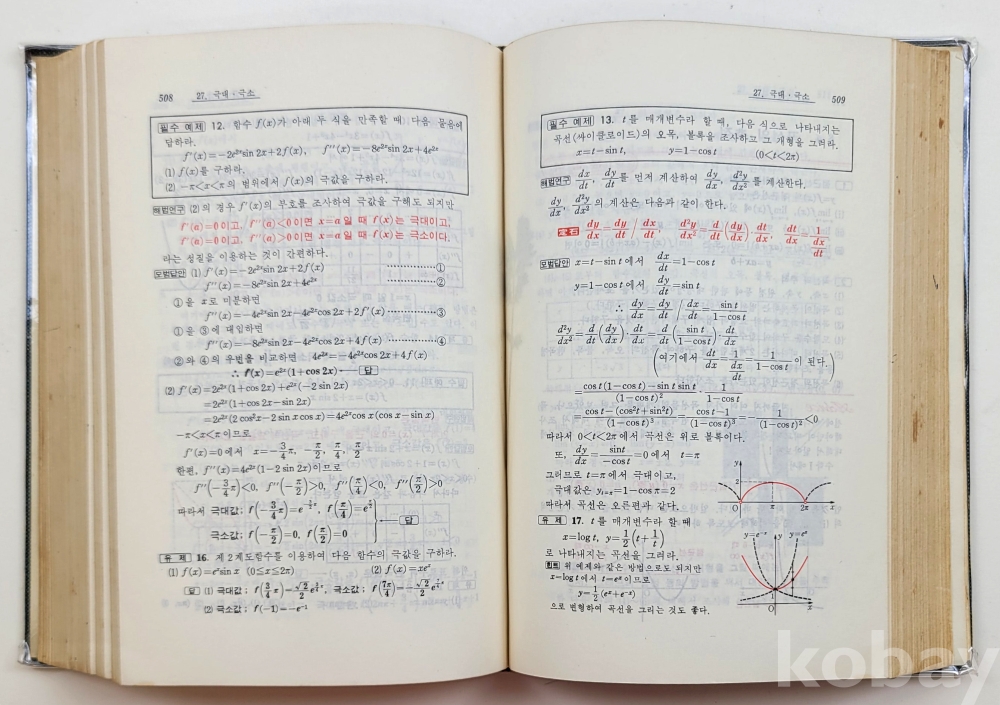 508 27. 극대·극소
필수 예제 12. 함수 f(x)가 아래 두 식을 만족할 때, 다음 물음에
답하라.
f'(x)=-2e²ˣsin 2x+2f(x), f''(x)=-8e²ˣsin 2x+4e²ˣ
(1) f(x)를 구하라.
(2) -π<x<π의 범위에서 f(x)의 극값을 구하라.
해법연구 (2)의 경우 f'(x)의 부호를 조사하여 극값을 구해도 되지만
f'(a)=0이고, f''(a)<0이면 x=a일 때 f(x)는 극대이고,
f'(a)=0이고, f''(a)>0이면 x=a일 때 f(x)는 극소이다.
라는 성질을 이용하는 것이 간편하다.
모범답안 (1) f'(x)=-2e²ˣsin 2x+2f(x) ……………①
f''(x)=-8e²ˣsin 2x+4e²ˣ ……………②
①을 x로 미분하면
f''(x)=-4e²ˣsin 2x-4e²ˣcos 2x+2f'(x) ……………③
①을 ③에 대입하면
f''(x)=-8e²ˣsin 2x-4e²ˣcos 2x+4f(x) ……………④
②와 ④의 우변을 비교하면 4e²ˣ=-4e²ˣcos 2x+4f(x)
∴ f(x)=e²ˣ(1+cos 2x) ← 답
(2) f'(x)=2e²ˣ(1+cos 2x)+e²ˣ(-2 sin 2x)
=2e²ˣ(1+cos 2x-sin 2x)
=2e²ˣ(2 cos²x-2 sin x cos x)=4e²ˣcos x(cos x-sin x)
-π<x<π이므로
f'(x)=0에서 x=-3/4 π, -π/2, π/4, π/2
한편, f''(x)=4e²ˣ(1-2 sin 2x)이므로
f''(-3/4 π)<0, f''(-π/2)>0, f''(π/4)<0, f''(π/2)>0
따라서 극대값; f(-3/4 π)=e^(-3/2 π), f(π/4)=e^(π/2)
← 답
극소값; f(-π/2)=0, f(π/2)=0
유제 16. 제2계도함수를 이용하여 다음 함수의 극값을 구하라.
(1) f(x)=eˣsin x (0≤x≤2π) (2) f(x)=xeˣ
답 (1) 극대값; f(3/4 π)=√2/2 e^(3/4 π), 극소값; f(7π/4)=-√2/2 e^(7/4 π)
(2) 극소값; f(-1)=-e⁻¹
27. 극대·극소 509
필수 예제 13. t를 매개변수라 할 때, 다음 식으로 나타내지는
곡선(싸이클로이드)의 오목, 볼록을 조사하고 그 개형을 그려라.
x=t-sin t, y=1-cos t (0<t<2π)
해법연구 dx/dt, dy/dt를 먼저 계산하여 dy/dx, d²y/dx²를 계산한다.
dy/dx, d²y/dx²의 계산은 다음과 같이 한다.
定石 dy/dx=dy/dt / dx/dt, d²y/dx²=d/dt(dy/dx)·dt/dx, dt/dx=1/(dx/dt)
모범답안 x=t-sin t에서 dx/dt=1-cos t
y=1-cos t에서 dy/dt=sin t
∴ dy/dx=dy/dt / dx/dt=sin t/(1-cos t)
d²y/dx²=d/dt(dy/dx)·dt/dx=d/dt(sin t/(1-cos t))·dt/dx
(여기에서 dt/dx=1/(dx/dt)=1/(1-cos t)이 된다.)
=(cos t(1-cos t)-sin t sin t)/(1-cos t)²·1/(1-cos t)
=(cos t-(cos²t+sin²t))/(1-cos t)³=(cos t-1)/(1-cos t)³=-1/(1-cos t)²<0
따라서 0<t<2π에서 곡선은 위로 볼록이다.
또, dy/dx=sin t/-cos t=0에서 t=π
그러므로 t=π에서 극대이고,
극대값은 yₜ₌π=1-cos π=2
따라서 곡선은 오른편과 같다.
y 2 O π 2π x
유제 17. t를 매개변수라 할 때
x=log t, y=1/2(t+1/t)
로 나타내지는 곡선을 그려라.
힌트 위 예제와 같은 방법으로도 되지만
x=log t에서 t=eˣ이므로
y=1/2(eˣ+e⁻ˣ)
으로 변형하여 곡선을 그리는 것도 좋다.
y=e⁻ˣ y y=eˣ
O x
kobay